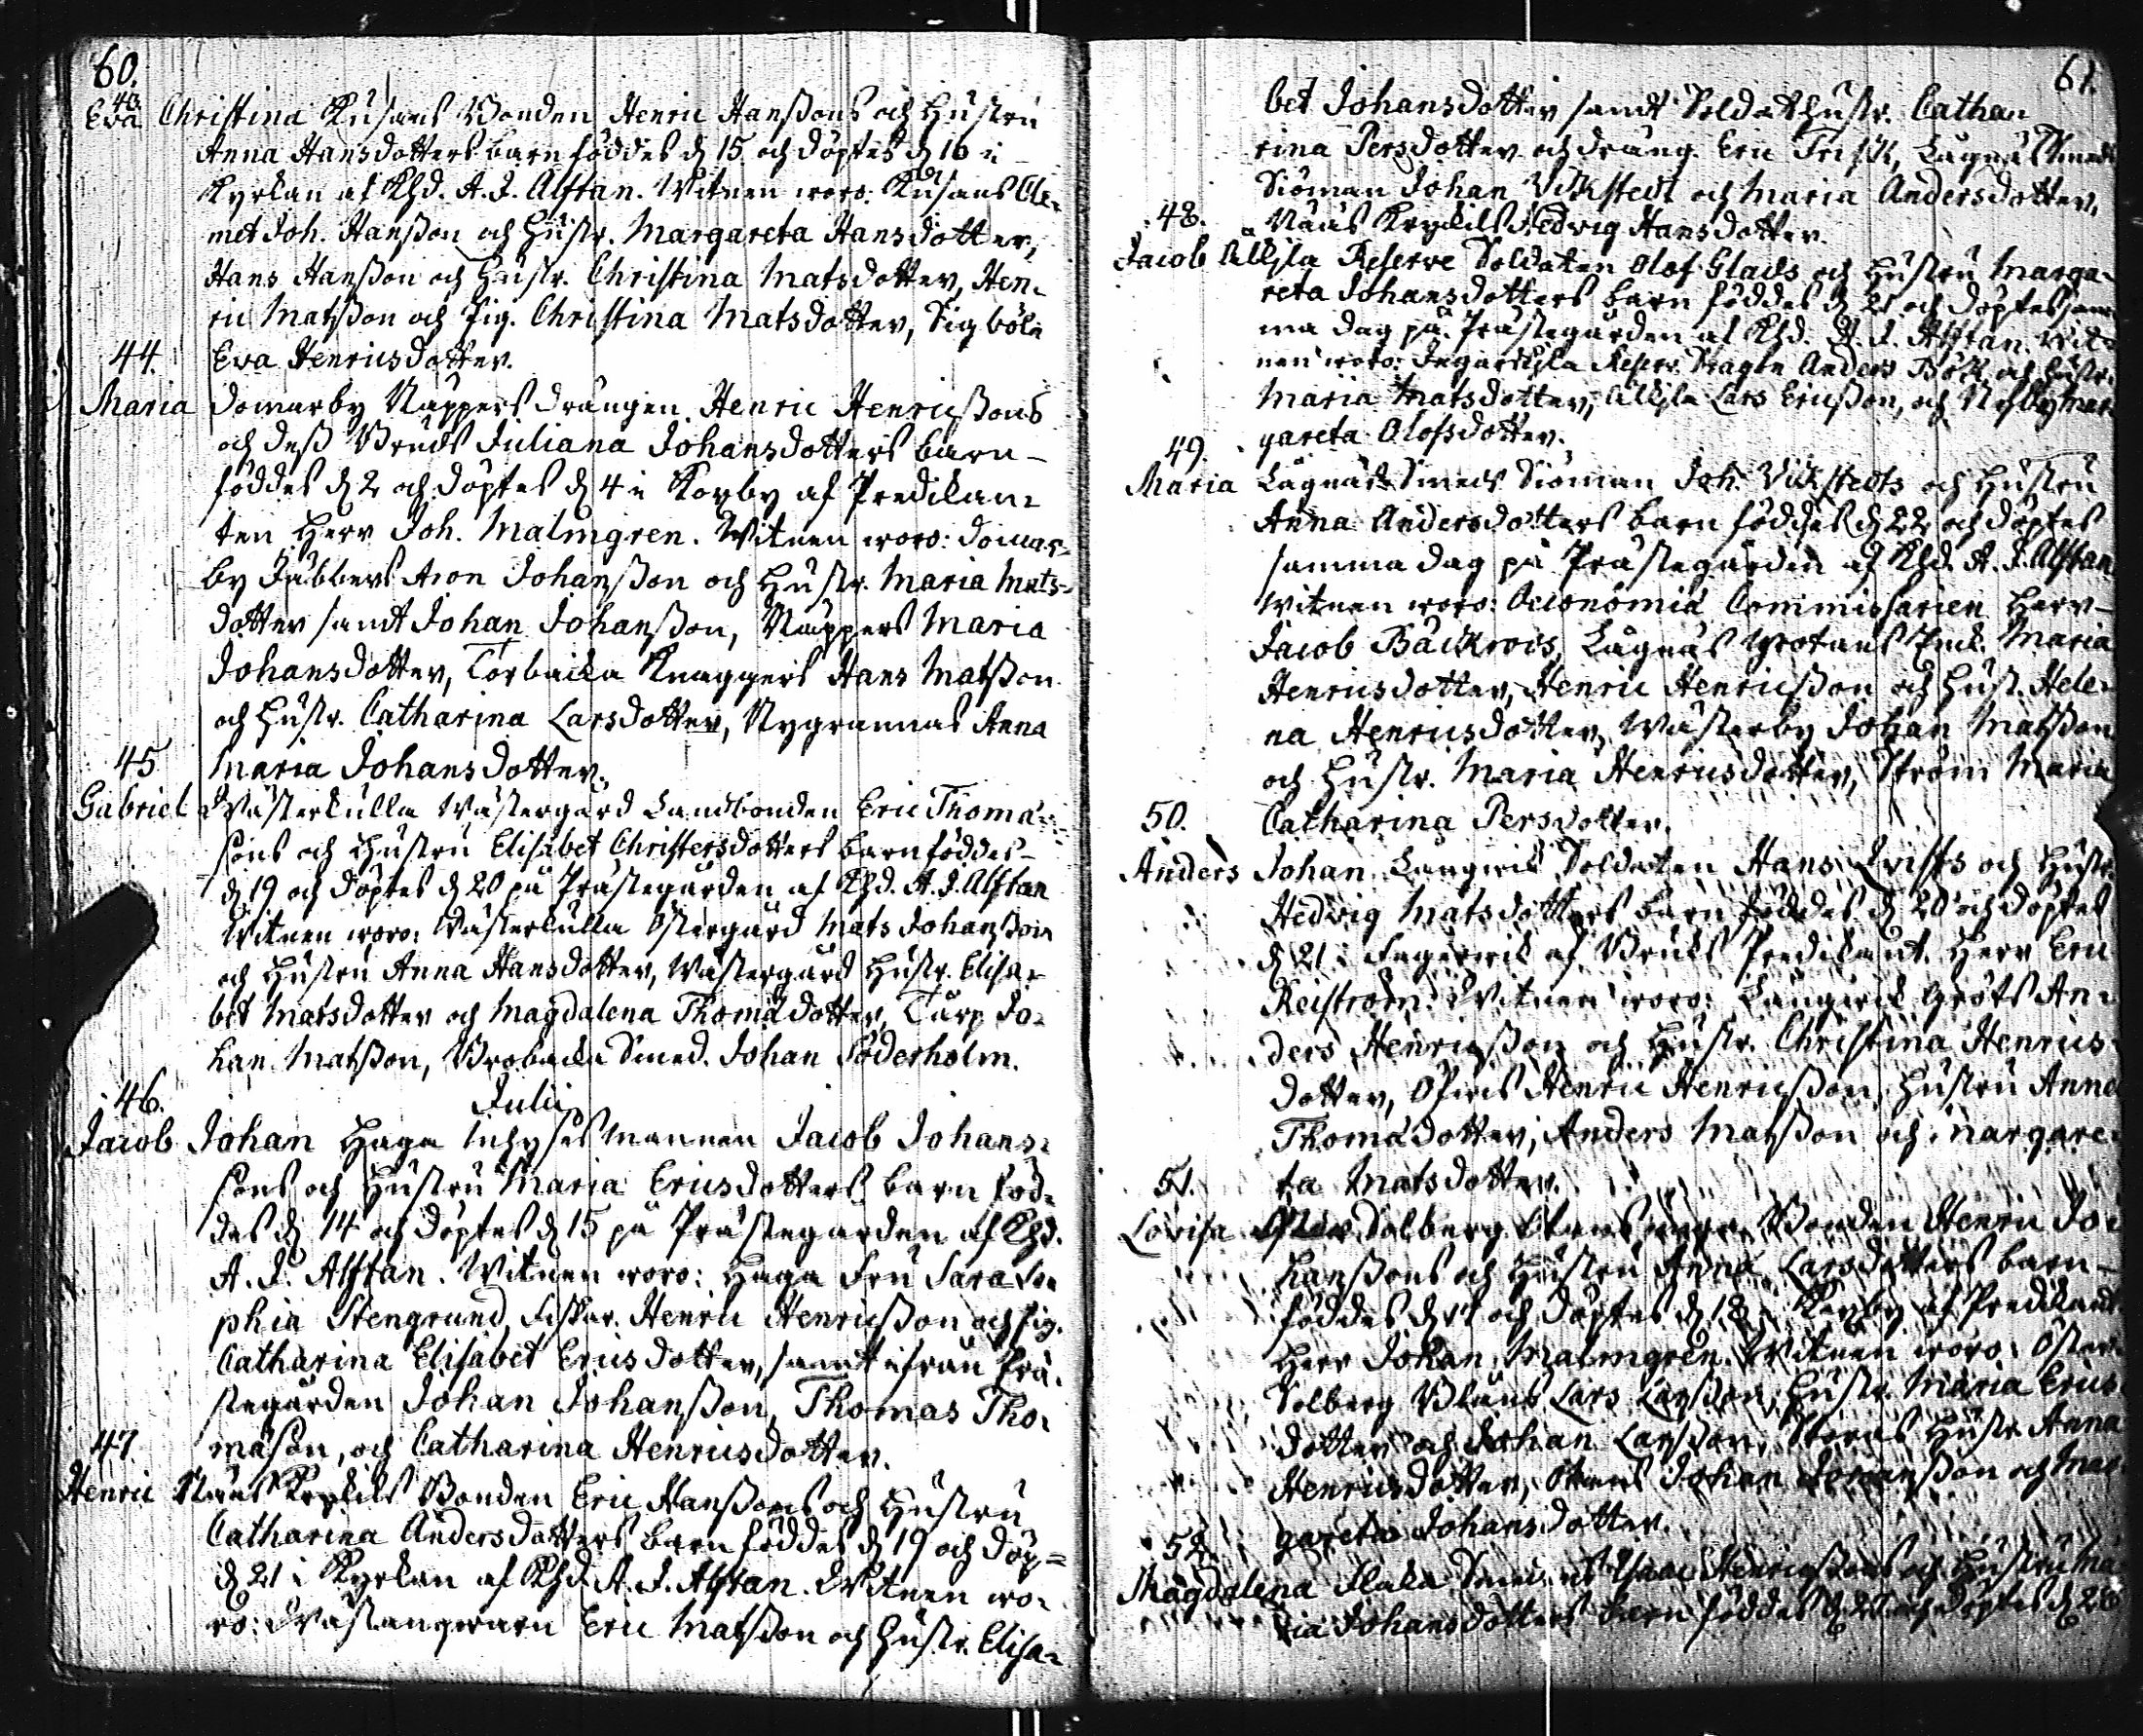 60.
43.
Eva Christina Kusans Bonden Henric Hanßons och Hustru
Anna Hansdotters barn föddes d. 15 och döptes d. 16 i
Kyrkan af Khd. A. J. Alftan. Witnen woro: Kusans Cle-
met Joh. Hanßon och Hustr. Margareta Hansdotter,
Hans Hanßon och Hustr. Christina Matsdotter, Hen-
ric Matsson och Pig. Christina Matsdotter, Sigböle
44. Eva Henricsdotter.
Maria Domarby Nappers drängen Henric Henricßons
och deß Bruds Juliana Johansdotters barn
föddes d. 2 och döptes d. 4 i Korby af Predikan-
ten Herr Joh. Malmgren. Witnen woro: Domar-
by Jubbers Aron Johanßon och Hustr. Maria Mats-
dotter samt Johan Johanßon, Nappers Maria
Johansdotter, Torbacka Knappers Hans Matsson
och Hustr. Catharina Larsdotter, Nygrannas Anna
45 Maria Johansdotter.
Gabriel Wästerkulla Wästergård Landbonden Eric Thomæ-
sons och Hustru Elisabet Christersdotters barn föddes
d. 19 och döptes d. 20 på Prästegården af Khd. A. J. Alftan
Witnen woro: Wästerkulla Östergård Mats Johanßon
och Hustru Anna Hansdotter, Wästergård Hustr. Elisa-
bet Matsdotter och Magdalena Thomædotter, Tarp Jo-
han Matsson, Brobacka Smed. Johan Söderholm.
46. Julii
Jacob Johan Haga Inhysesmannen Jacob Johans-
sons och Hustru Maria Ericsdotters barn föd-
des d. 14 och döptes d. 15 på Prästegården af Khd.
A. J. Alftan. Witnen woro: Haga Fru Sara So-
phia Stengrund, Henric Henricßon och Pig.
Catharina Elisabet Ericsdotter, samt ifrån Prä-
stegården Johan Johanßon, Thomas Tho-
47. mæson, och Catharina Henricsdotter.
Henric Näas Bonden Eric Hanßons och Hustru
Catharina Andersdotters barn föddes d. 19 och döp-
d. 21 i Kyrkan af Khd. A. J. Alftan. Witnen wo-
ro: Wästangwarn Eric Matsson och Hustr. Elisa-
61.
bet Johansdotter samt Soldat Hustr. Catha
rina Persdotter och dräng. Eric Frisk, Lagnäs Smeds
Siöman Johan Vikstedt och Maria Andersdotter,
48. Näas Hedvig Hansdotter.
Jacob Reserve Soldaten Olof Glads och Hustru Marga-
reta Johansdotters barn föddes d. 21 och döptes sam
ma dag på Prästegården af Khd. A. J. Alftan. Wit-
nen woro: Reserv. Dragon Anders Böök och Hustr.
Maria Matsdotter, Lars Ericßon, och Nyby Mar
49. gareta Olofsdotter.
Maria Lagnäs Smeds Siöman Joh. Vikstedts och Hustru
Anna Andersdotters barn föddes d. 22 och döptes
samma dag på Prästegården af Khd. A. J. Alftan
Witnen woro: Oeconomiæ Commissarien Herr
Jacob Backrois, Lagnäs Maria
Henricsdotter, Henric Henricßon och Hust. Hele-
na Henricsdotter, Wästerby Johan Matsson
och Hustr. Maria Henricsdotter, Ström Maria
50. Catharina Persdotter.
Anders Johan Långwik Soldaten Hans Qvists och Hustr.
Hedvig Matsdotters barn föddes d. 20 och döptes
d. 21 i Fagerwik af Bruks Predikant. Herr Eric
Reistrom. Witnen woro: Långwik Gröts An-
ders Henricßon och Hustr. Christina Henrics
dotter, Henric Henricßon, Hustru Anna
Thomædotter, Anders Matsson och Margare-
51. ta Matsdotter.
Lovisa Öster Solberg Bonden Henric Jo-
hanßons och Hustru Anna Larsdotters barn
föddes d. 17 och döptes d. 18 i Korby af Predikant
Herr Johan Malmgren. Witnen woro: Öster
Solberg Lars Larsson, Hustr. Maria Erics
dotter och Johan Larsson, Storns Hustr. Anna
Henricsdotter, Johan Johanßon och Mar
52. gareta Johansdotter.
Magdalena Isaac Henricßons och Hustru Ma
ria Johansdotters barn föddes d. 27 och döptes d. 28